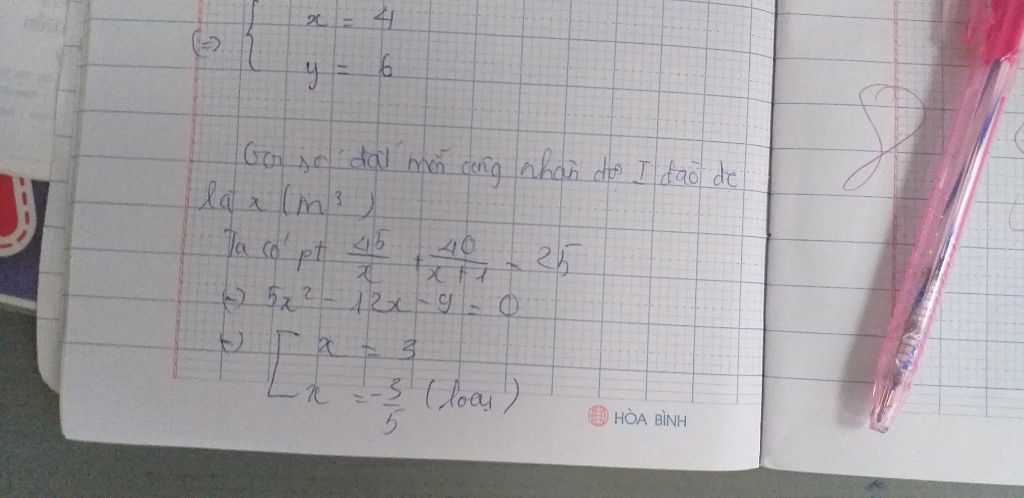 x = 4
(=) {
y = 6
Gọi số đất mỗi công nhân đội I đào đc
là x (m³)
Ta có pt 45/x + 40/x+1 = 25
(=) 5x² - 12x - 9 = 0
(=) [ x = 3
x = -3/5 (loại)
HÒA BÌNH
8